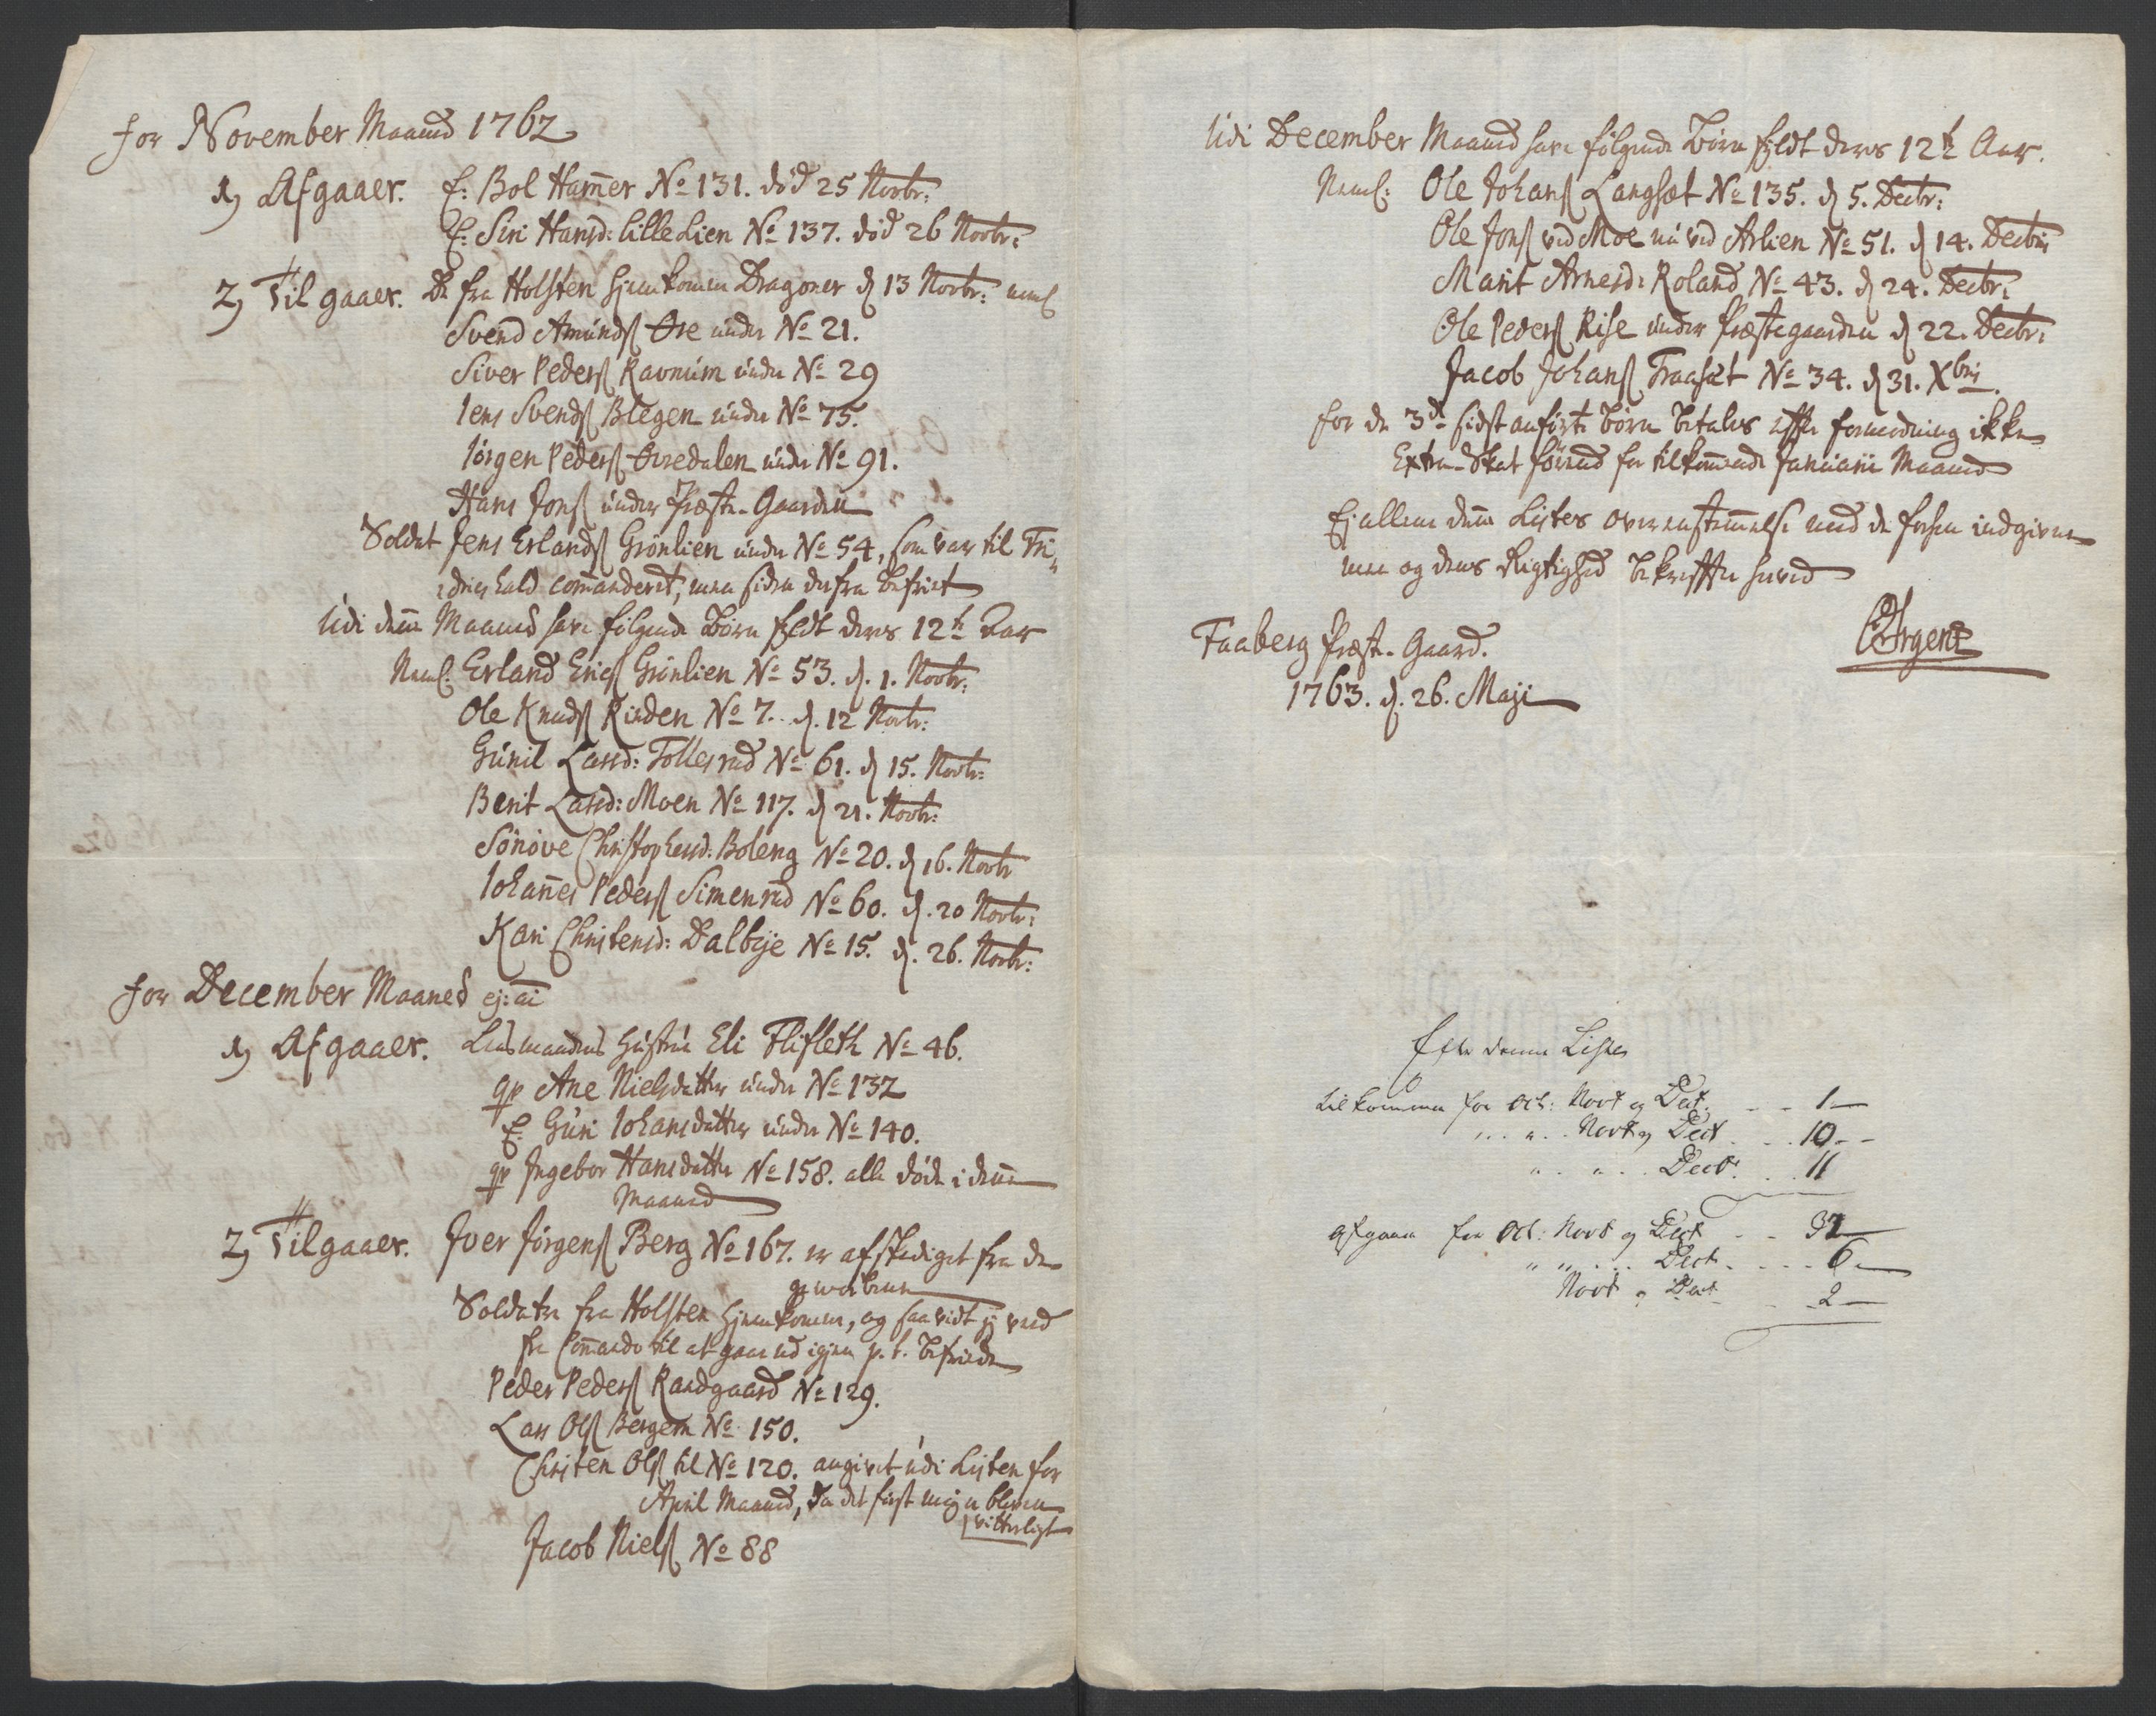 for November Maaned 1762
1, Afgaaer. E: Bol Ham̄er No 131. død 25 Novbr:
E: Siri Hansd: lille Lien No 137. død 26 Novbr:
2, Tilgaaer. De fra Holsten hjemkomne Dragoner d 13 Novbr: neml
Svend Amundſ Øre under No 21.
Siver Pederſ Ravnum under No 29
Jens Svendſ Blegen under No 75.
Jörgen Pederſ Øvredalen under No 91.
Hans Jonſ under Præste-Gaarden
Soldat Jens Erlandſ Grönlien under No 54, som var til Fri-
drichshald com̄anderet, men siden derfra befriet
Udi den̄e Maaned have fölgende Börn fyldt deres 12te Aar
Neml: Erland Ericſ Grönlien No 53. d. 1. Novbr:
Ole Knudſ Rinden No 7. d. 12 Novbr:
Gunil Larsd: Tollesrud No 61. d 15. Novbr:
Berit Larsd: Moen No 117. d 21. Novbr:
Sönove Christophersd: Boleng No 20. d 16. Novbr
Johan̄es Pederſ Simenrud No 60. d. 20 Novbr:
Kari Christensd: Dalbye No 15. d. 26. Novbr:
for December Maaned ej: ai
1, Afgaaer. Lensmandens Hustrue Eli Flifleth No 46.
qv Ane Nielsdatter under No 132
E: Guri Johansdatter under No 140.
qv Ingebor Hansdatter No 158. alle döde i den̄e
Maaned
2, Tilgaaer. Iver Jörgenſ Berg No 167. er afskediget fra de
gevorbene
Soldater fra Holsten hjemkomne, og saavidt jeg veed
fra Com̄ando til at gaae ud igjen p. t. befriede
Peder Pederſ Randgaard No 129.
Lars Olſ Bergem No 150.
Christen Olſ til No 120. angivet udi Listen for
April Maaned, da det først mig er bleven
vitterligt
Jacob Nielſ No 88
Udi December Maaned have fölgende Börn fyldt deres 12te Aar.
Neml: Ole Johanſ Langsæt No 135. d 5. Decbr:
Ole Jonſ ved Moe nu ved Arlien No 51. d 14. Decbris
Marit Arnesd: Roland No 43. d 24. Decbr:
Ole Pederſ Rise under Præstegaarden d 22. Decbr:
Jacob Johanſ Fraaset No 34. d 31. Xbris.
for de 3de sidst anförte Börn betales efter Formodning ikke
Extra-Skat förend for tilkom̄ende Januarii Maaned
Ej allene den̄e Listes overenstem̄melse med de forhen indgivne
men og dens Rigtighed bekræfter herved
Faaberg Præste-Gaard.
1763. d. 26. Maji
Efter denne Liste
tilkommer for Oct: Novt og Dect. - - 1 -
" . " . Novt og Dect . . 10 - -
" . " . . Dect. . . 11
afgaaer for Oct: Novt og Dect - - 32 -
" " . . . Dect. . . . 6 -
Novt og Dect - 2 -